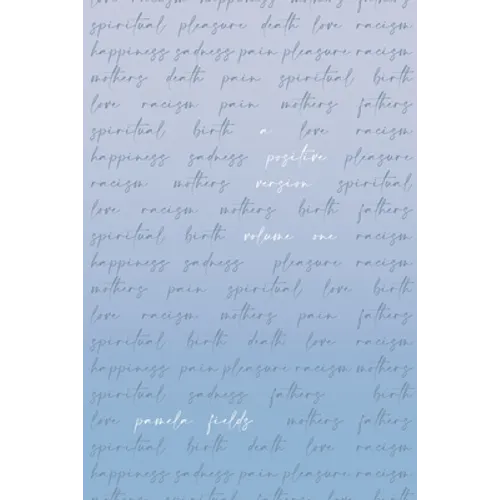 love racism happiness mothers fathers
spiritual pleasure death love racism
happiness sadness pain pleasure racism
mothers death pain spiritual birth
love racism pain mothers fathers
spiritual birth a love racism
happiness sadness positive pleasure
racism mothers version spiritual
love racism mothers birth fathers
spiritual birth volume one racism
happiness sadness pleasure racism
mothers pain spiritual love birth
love racism mothers pain fathers
spiritual birth death love racism
happiness pain pleasure racism mothers
spiritual sadness fathers birth
love pamela fields mothers fathers
spiritual birth death love racism
happiness sadness pain pleasure racism
mothers spiritual love birth